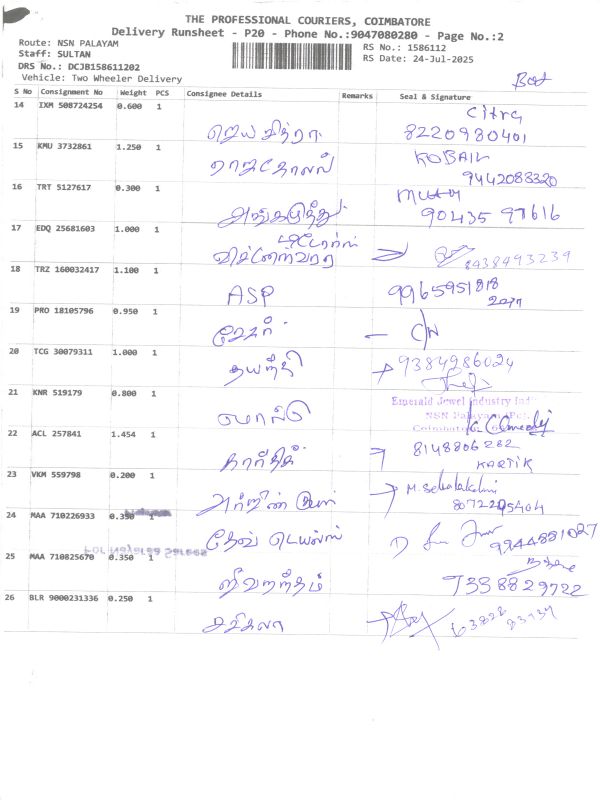 THE PROFESSIONAL COURIERS, COIMBATORE
Delivery Runsheet - P20 - Phone No.:9047080280 - Page No.:2
Route: NSN PALAYAM
Staff: SULTAN
DRS No.: DCJB158611202
Vehicle: Two Wheeler Delivery
RS No.: 1586112
RS Date: 24-Jul-2025
S No Consignment No Weight PCS Consignee Details Remarks Seal & Signature
14 IXM 508724254 0.600 1 ஜெயசித்ரா Citra
8220980401
15 KMU 3732861 1.250 1 ராஜகோபால்
9442088320
16 TRT 5127617 0.300 1 அங்கமுத்து
90435 97616
17 EDQ 25681603 1.000 1
8438493239
18 TRZ 160032417 1.100 1 ASP 9965951818
19 PRO 18105796 0.950 1 சேகர் - C/N
20 TCG 30079311 1.000 1 தயாநிதி 9384986024
21 KNR 519179 0.800 1
Emerald Jewel Industry Ind
NSN Palayam Post
Coimbatore
22 ACL 257841 1.454 1 கார்த்திக் 8148806282
KARTIK
23 VKM 559798 0.200 1 M. Sethalakshmi
24 MAA 710226933 0.350 1
9944881027
For Nayaraa Sarees
25 MAA 710825670 0.350 1 ஜீவானந்தம் 7338829722
26 BLR 9000231336 0.250 1 சசிகலா